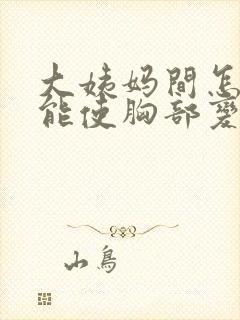 大姨妈間怎
能使胸部變
山鳥